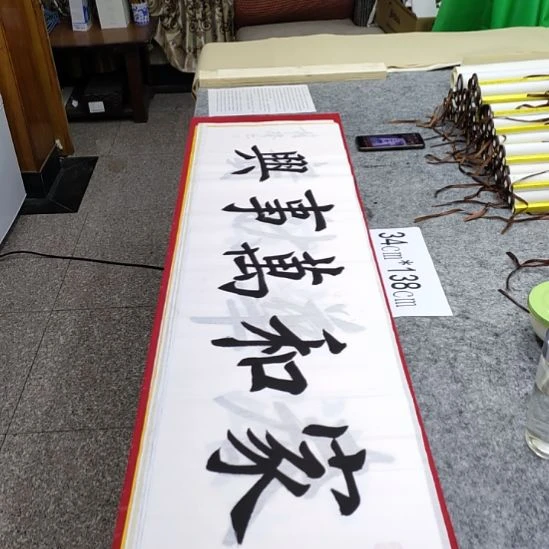 家和萬事興
34cm*138cm